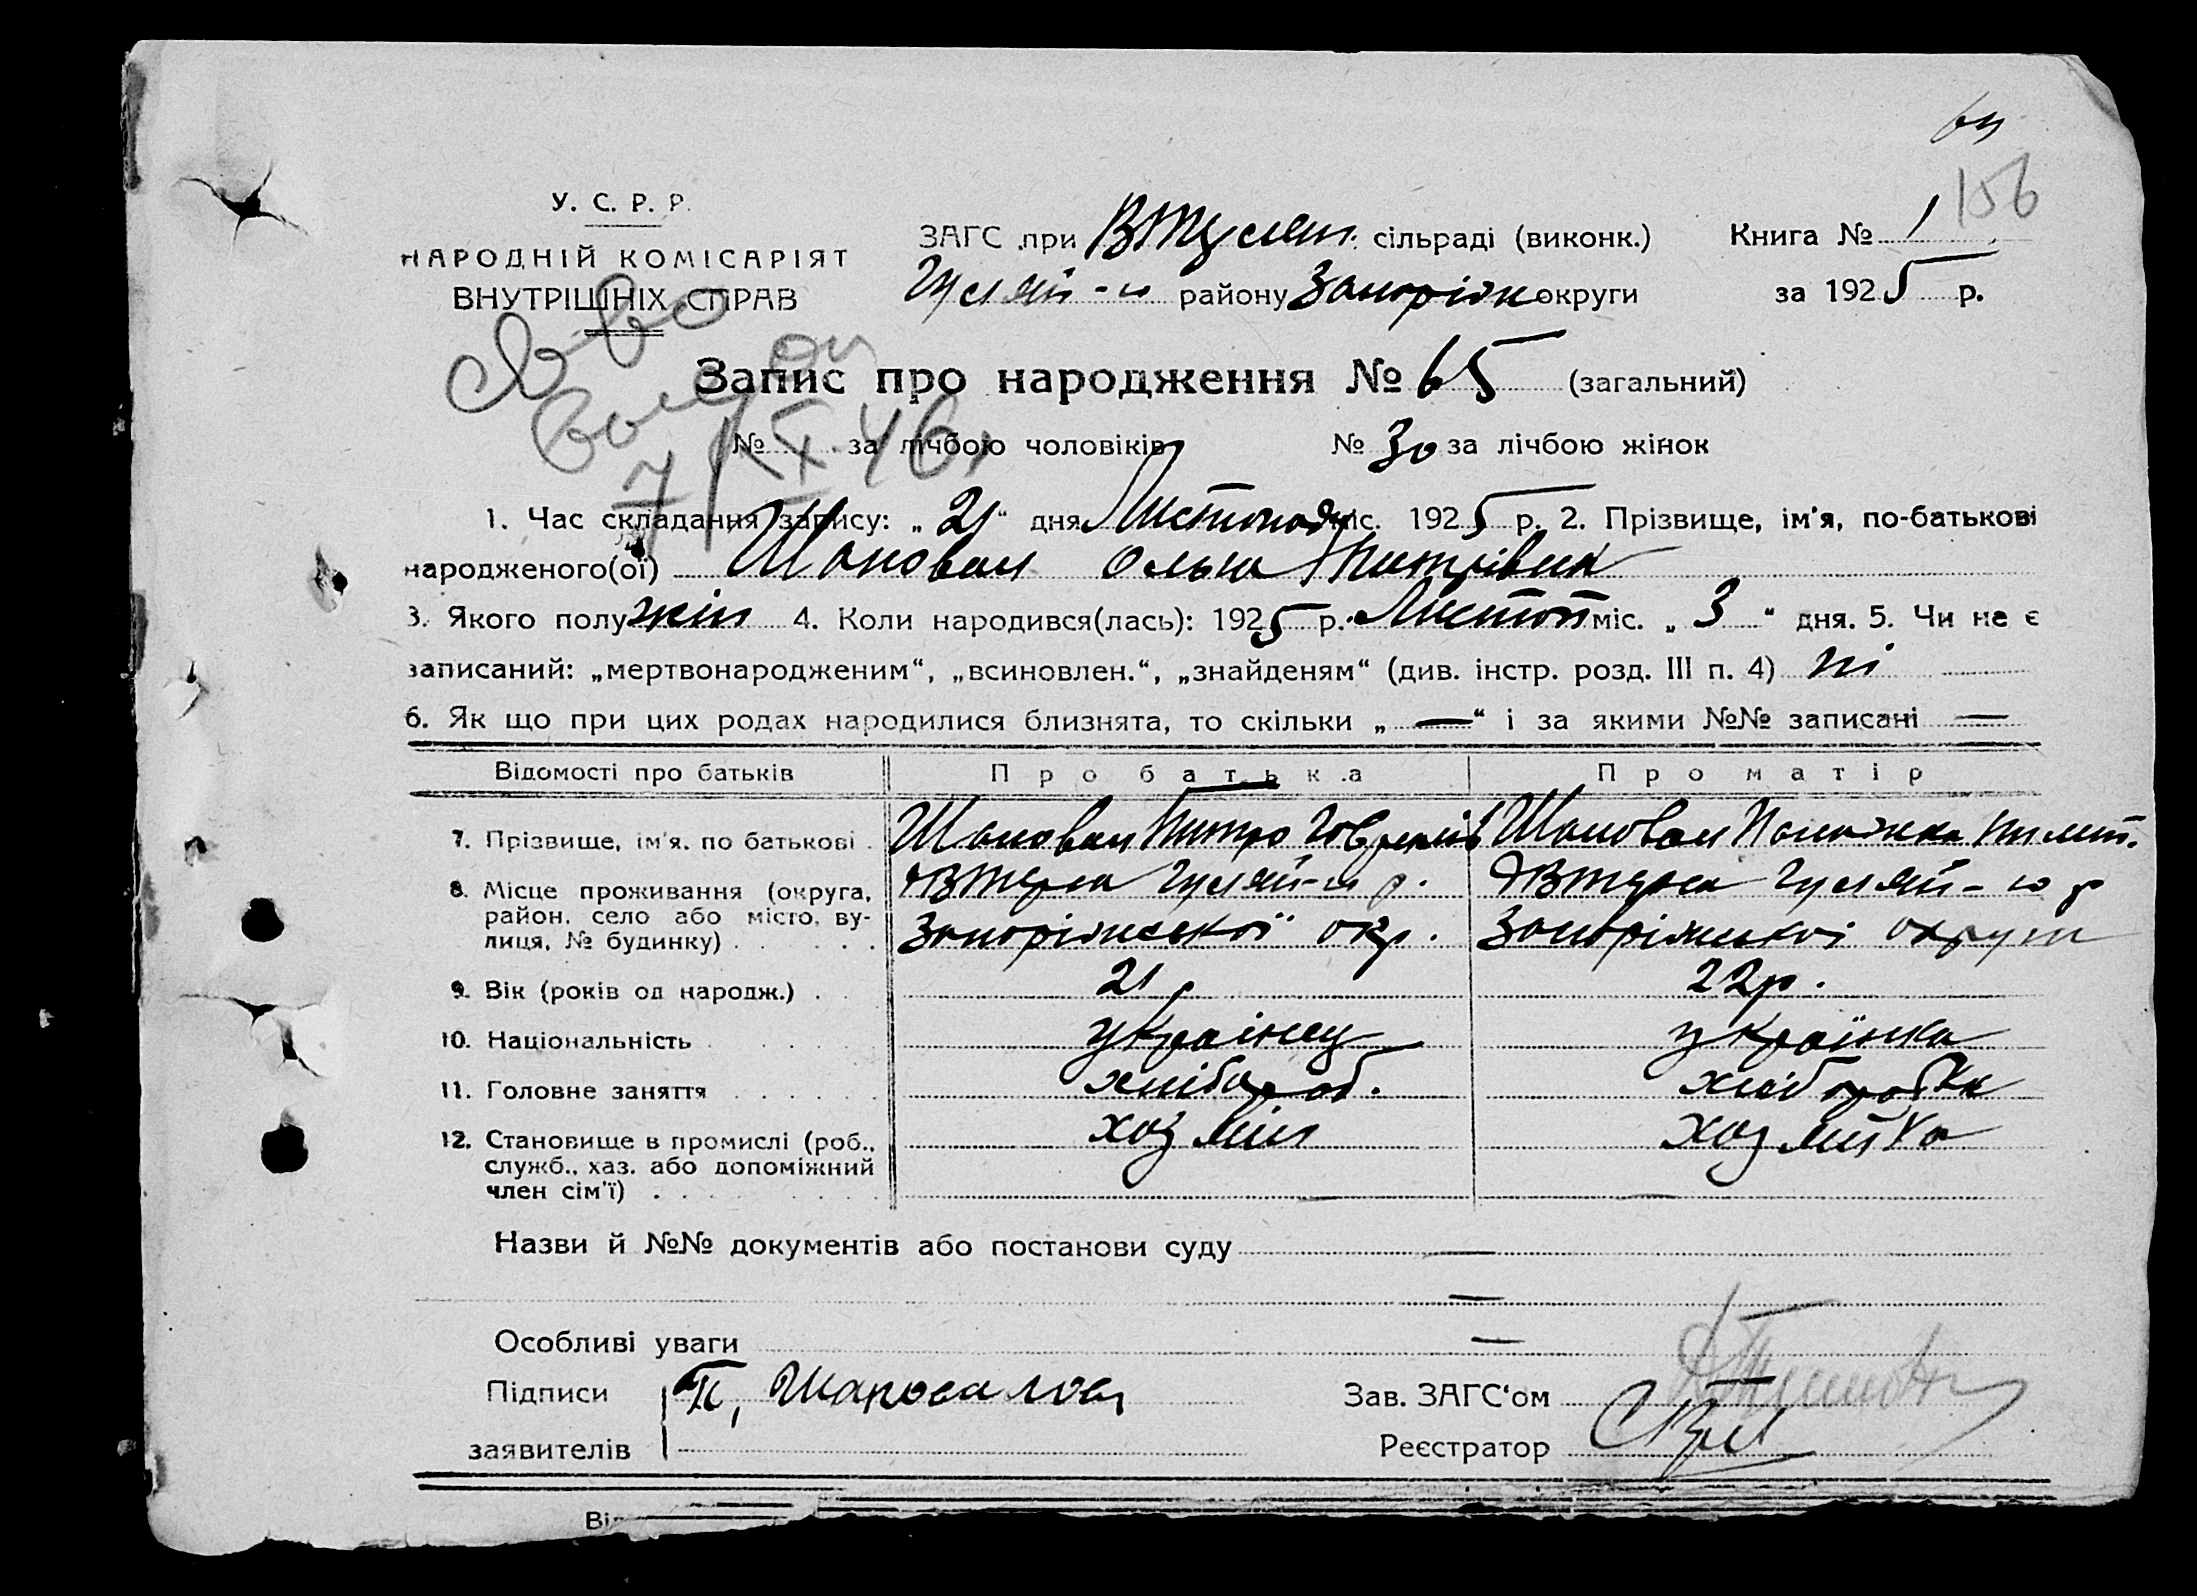 156
У. С. Р. Р.
НАРОДНІЙ КОМІСАРІЯТ
ВНУТРІШНІХ СПРАВ
ЗАГС при сільраді (виконк.)
Книга № 1
Гуляй - району Запоріж округи
за 1925 р.
Запис про народження № 65 (загальний)
№ за лічбою чоловіків № 30 за лічбою жінок
7/X 46
1. Час складання запису: „21“ дня Листопаду міс. 1925 р. 2. Прізвище, ім'я, по-батькові
народженого(ої) Шаповал Ольга Дмитрівна
3. Якого полу жін 4. Коли народився(лась): 1925 р. Листоп міс. „3“ дня. 5. Чи не є
записаний: „мертвонародженим“, „всиновлен.“, „знайденям“ (див. інстр. розд. III п. 4) ні
6. Як що при цих родах народилися близнята, то скільки „—“ і за якими №№ записані —
Відомості про батьків Про батька Про матір
7. Прізвище, ім'я, по батькові Шаповал Дмитро Шаповал
8. Місце проживання (округа, район, село або місто, вулиця, № будинку)
Гуляй- р. Гуляй- р
Запоріжської окр. Запоріжської округи
9. Вік (років од народж.) 21 р 22 р.
10. Національність українец українка
11. Головне заняття хлібороб. хліборобка
12. Становище в промислі (роб., служб., хаз. або допоміжний член сім'ї) хозяїн хозяйка
Назви й №№ документів або постанови суду —
—
Особливі уваги —
Підписи заявителів П, Шаповалов
Зав. ЗАГС'ом
Реєстратор